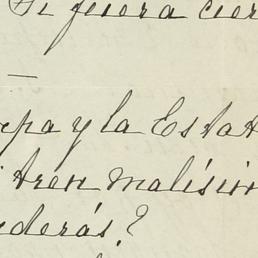 Si fuera cier
epa y la Estat
tren malísim
ederás?